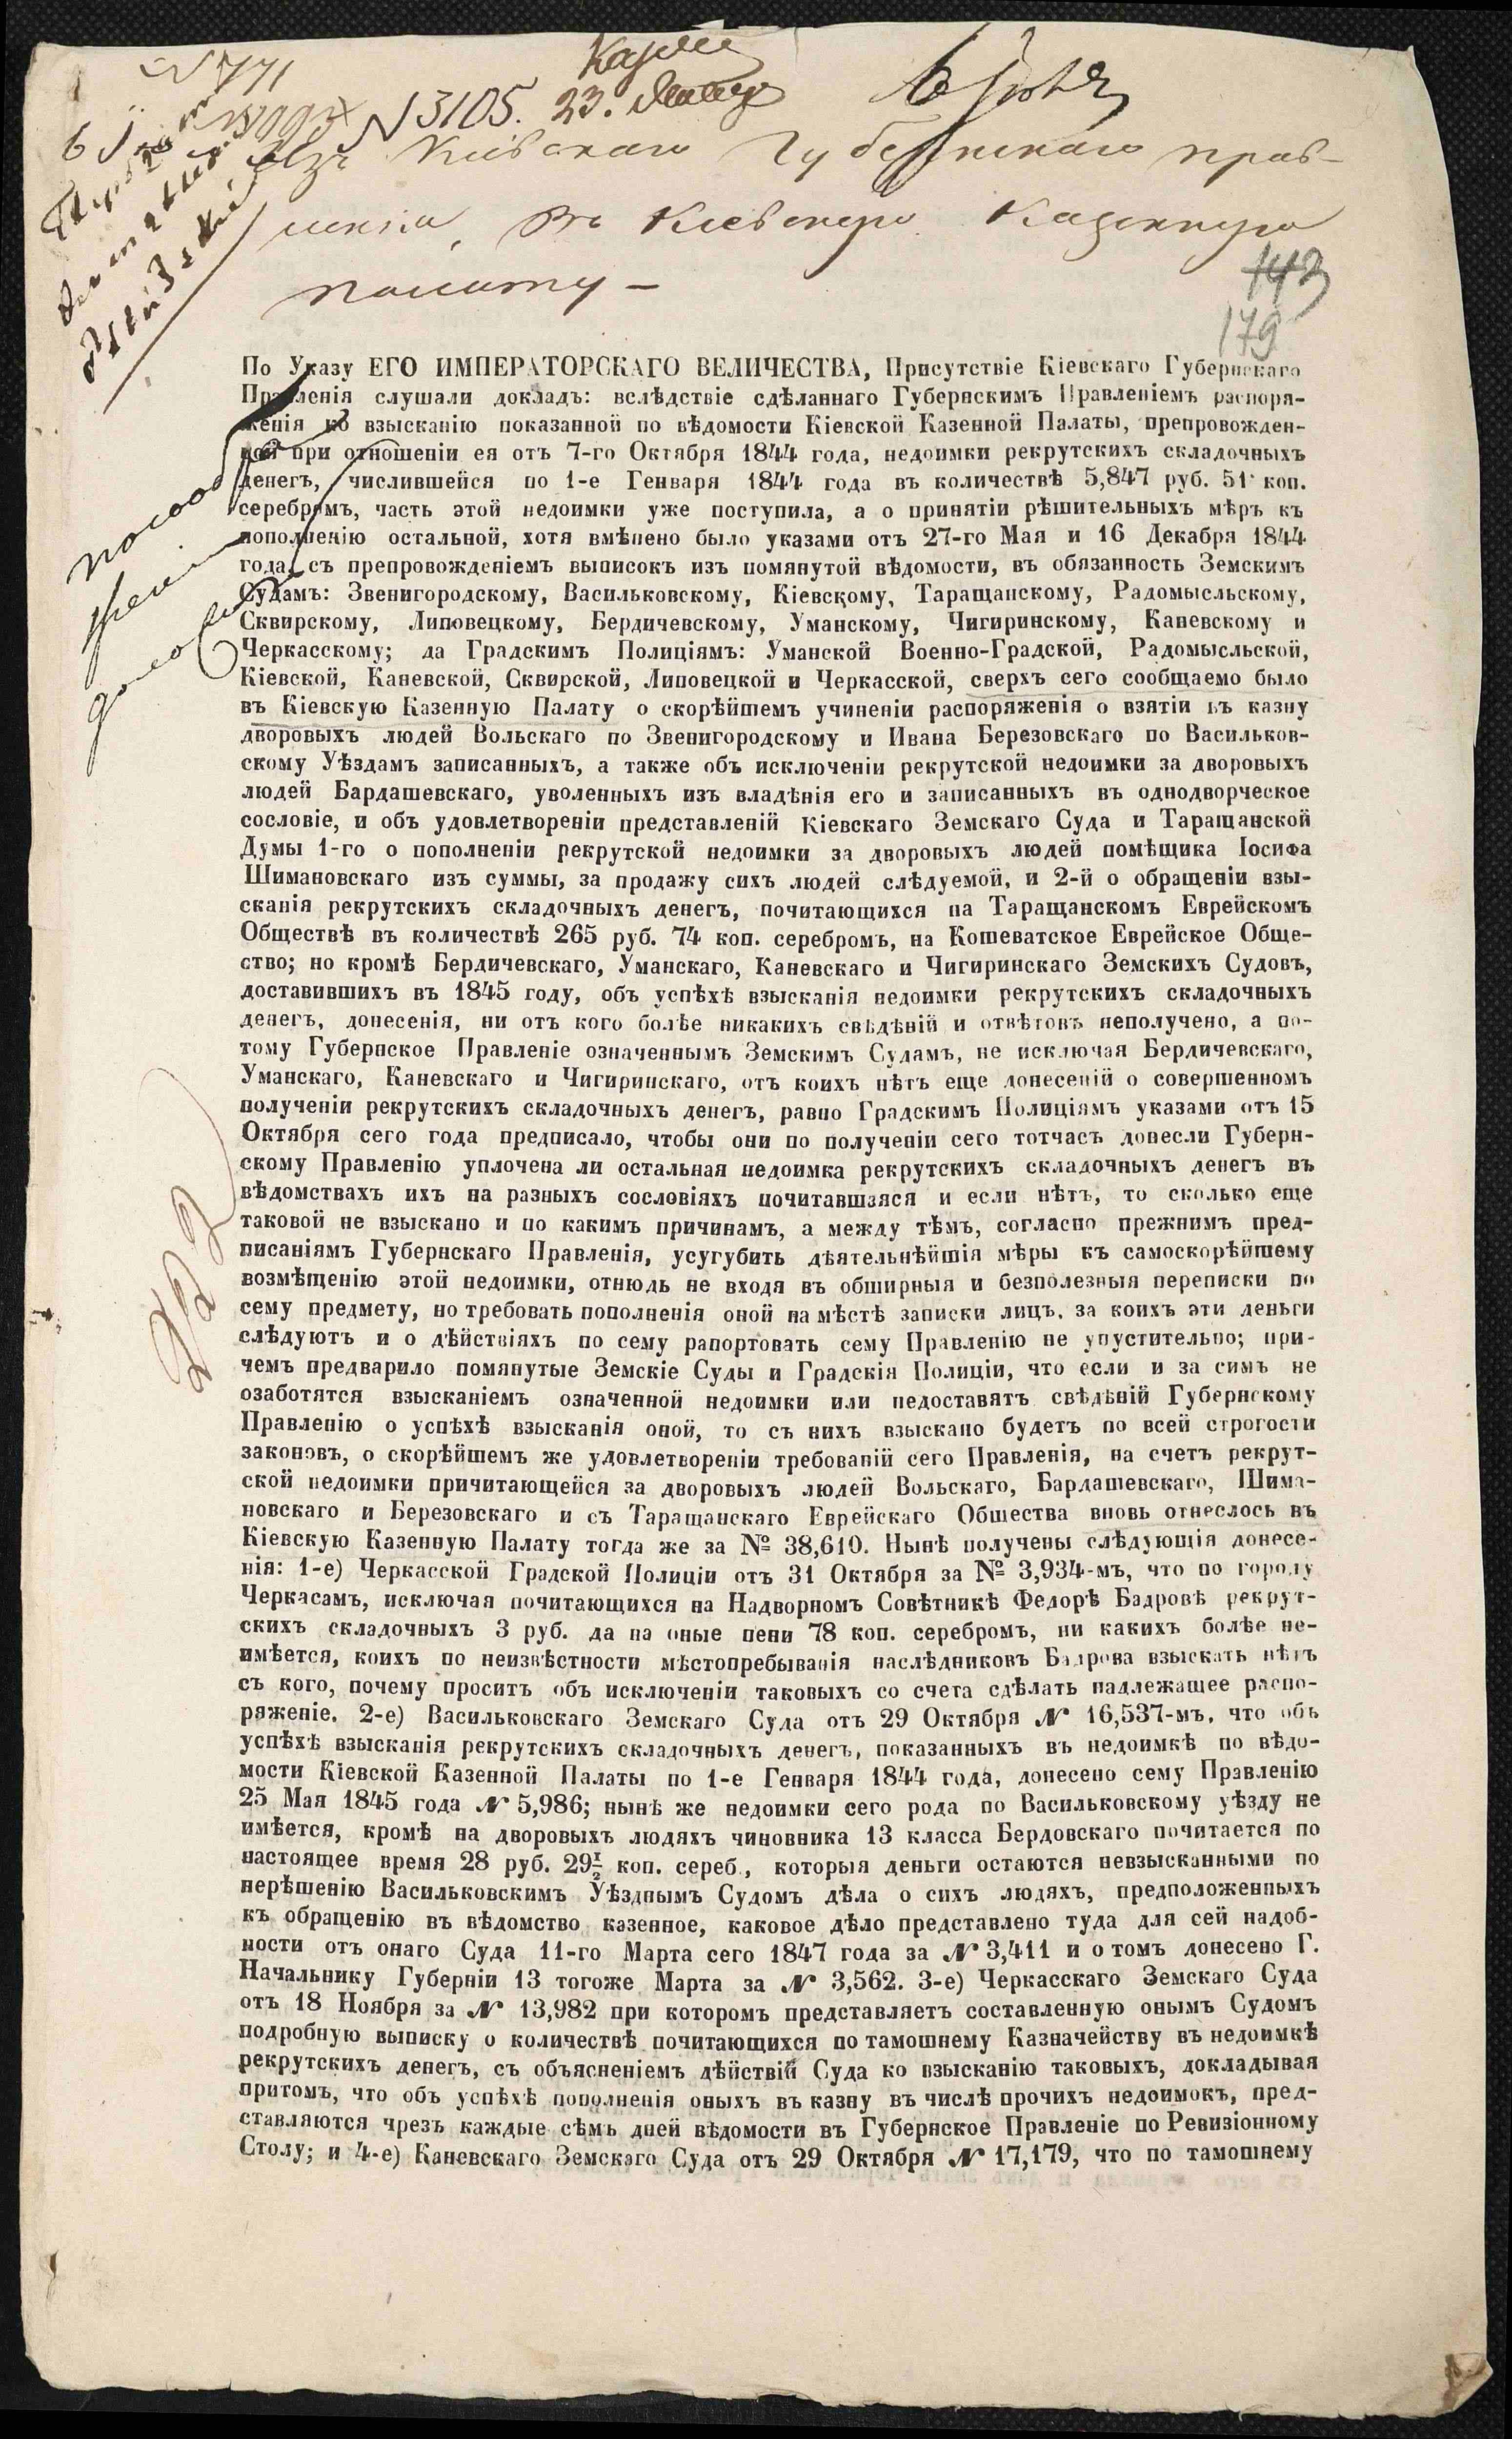 N 771
N 3105. 23.
Изъ Кіевскаго Губернскаго прав-
ленія, Въ Кіевскую Казенную
палату -
143
179
По Указу ЕГО ИМПЕРАТОРСКАГО ВЕЛИЧЕСТВА, Присутствіе Кіевскаго Губернскаго
Правленія слушали докладъ: вслѣдствіе сдѣланнаго Губернскимъ Правленіемъ распоря-
женія ко взысканію показанной по вѣдомости Кіевской Казенной Палаты, препровожден-
ной при отношеніи ея отъ 7-го Октября 1844 года, недоимки рекрутскихъ складочныхъ
денегъ, числившейся по 1-е Генваря 1844 года въ количествѣ 5,847 руб. 51 коп.
серебромъ, часть этой недоимки уже поступила, а о принятіи рѣшительныхъ мѣръ къ
пополненію остальной, хотя вмѣнено было указами отъ 27-го Мая и 16 Декабря 1844
года, съ препровожденіемъ выписокъ изъ помянутой вѣдомости, въ обязанность Земскимъ
Судамъ: Звенигородскому, Васильковскому, Кіевскому, Таращанскому, Радомысльскому,
Сквирскому, Липовецкому, Бердичевскому, Уманскому, Чигиринскому, Каневскому и
Черкасскому; да Градскимъ Полиціямъ: Уманской Военно-Градской, Радомысльской,
Кіевской, Каневской, Сквирской, Липовецкой и Черкасской, сверхъ сего сообщаемо было
въ Кіевскую Казенную Палату о скорѣйшемъ учиненіи распоряженія о взятіи въ казну
дворовыхъ людей Вольскаго по Звенигородскому и Ивана Березовскаго по Васильков-
скому Уѣздамъ записанныхъ, а также объ исключеніи рекрутской недоимки за дворовыхъ
людей Бардашевскаго, уволенныхъ изъ владѣнія его и записанныхъ въ однодворческое
сословіе, и объ удовлетвореніи представленій Кіевскаго Земскаго Суда и Таращанской
Думы 1-го о пополненіи рекрутской недоимки за дворовыхъ людей помѣщика Іосифа
Шимановскаго изъ суммы, за продажу сихъ людей слѣдуемой, и 2-й о обращеніи взы-
сканія рекрутскихъ складочныхъ денегъ, почитающихся на Таращанскомъ Еврейскомъ
Обществѣ въ количествѣ 265 руб. 74 коп. серебромъ, на Кошеватское Еврейское Обще-
ство; но кромѣ Бердичевскаго, Уманскаго, Каневскаго и Чигиринскаго Земскихъ Судовъ,
доставившихъ въ 1845 году, объ успѣхѣ взысканія недоимки рекрутскихъ складочныхъ
денегъ, донесенія, ни отъ кого болѣе никакихъ свѣдѣній и отвѣтовъ неполучено, а по-
тому Губернское Правленіе означеннымъ Земскимъ Судамъ, не исключая Бердичевскаго,
Уманскаго, Каневскаго и Чигиринскаго, отъ коихъ нѣтъ еще донесеній о совершенномъ
полученіи рекрутскихъ складочныхъ денегъ, равно Градскимъ Полиціямъ указами отъ 15
Октября сего года предписало, чтобы они по полученіи сего тотчасъ донесли Губерн-
скому Правленію уплочена ли остальная недоимка рекрутскихъ складочныхъ денегъ въ
вѣдомствахъ ихъ на разныхъ сословіяхъ почитавшаяся и если нѣтъ, то сколько еще
таковой не взыскано и по какимъ причинамъ, а между тѣмъ, согласно прежнимъ пред-
писаніямъ Губернскаго Правленія, усугубить дѣятельнѣйшія мѣры къ самоскорѣйшему
возмѣщенію этой недоимки, отнюдь не входя въ обширныя и безполезныя переписки по
сему предмету, но требовать пополненія оной на мѣстѣ записки лицъ, за коихъ эти деньги
слѣдуютъ и о дѣйствіяхъ по сему рапортовать сему Правленію не упустительно; при-
чемъ предварило помянутые Земскіе Суды и Градскія Полиціи, что если и за симъ не
озаботятся взысканіемъ означенной недоимки или недоставятъ свѣдѣній Губернскому
Правленію о успѣхѣ взысканія оной, то съ нихъ взыскано будетъ по всей строгости
законовъ, о скорѣйшемъ же удовлетвореніи требованій сего Правленія, на счетъ рекрут-
ской недоимки причитающейся за дворовыхъ людей Вольскаго, Бардашевскаго, Шима-
новскаго и Березовскаго и съ Таращанскаго Еврейскаго Общества вновь отнеслось въ
Кіевскую Казенную Палату тогда же за № 38,610. Нынѣ получены слѣдующія донесе-
нія: 1-е) Черкасской Градской Полиціи отъ 31 Октября за № 3,934-мъ, что по городу
Черкасамъ, исключая почитающихся на Надворномъ Совѣтникѣ Федорѣ Бадровѣ рекрут-
скихъ складочныхъ 3 руб. да на оные пени 78 коп. серебромъ, ни какихъ болѣе не-
имѣется, коихъ по неизвѣстности мѣстопребыванія наслѣдниковъ Бадрова взыскать нѣтъ
съ кого, почему проситъ объ исключеніи таковыхъ со счета сдѣлать надлежащее распо-
ряженіе. 2-е) Васильковскаго Земскаго Суда отъ 29 Октября № 16,537-мъ, что объ
успѣхѣ взысканія рекрутскихъ складочныхъ денегъ, показанныхъ въ недоимкѣ по вѣдо-
мости Кіевской Казенной Палаты по 1-е Генваря 1844 года, донесено сему Правленію
25 Мая 1845 года № 5,986; нынѣ же недоимки сего рода по Васильковскому уѣзду не
имѣется, кромѣ на дворовыхъ людяхъ чиновника 13 класса Бердовскаго почитается по
настоящее время 28 руб. 29½ коп. сереб., которыя деньги остаются невзысканными по
нерѣшенію Васильковскимъ Уѣзднымъ Судомъ дѣла о сихъ людяхъ, предположенныхъ
къ обращенію въ вѣдомство казенное, каковое дѣло представлено туда для сей надоб-
ности отъ онаго Суда 11-го Марта сего 1847 года за № 3,411 и о томъ донесено Г.
Начальнику Губерніи 13 тогоже Марта за № 3,562. 3-е) Черкасскаго Земскаго Суда
отъ 18 Ноября за № 13,982 при которомъ представляетъ составленную онымъ Судомъ
подробную выписку о количествѣ почитающихся по тамошнему Казначейству въ недоимкѣ
рекрутскихъ денегъ, съ объясненіемъ дѣйствій Суда ко взысканію таковыхъ, докладывая
притомъ, что объ успѣхѣ пополненія оныхъ въ казну въ числѣ прочихъ недоимокъ, пред-
ставляются чрезъ каждые сѣмь дней вѣдомости въ Губернское Правленіе по Ревизіонному
Столу; и 4-е) Каневскаго Земскаго Суда отъ 29 Октября № 17,179, что по тамошнему